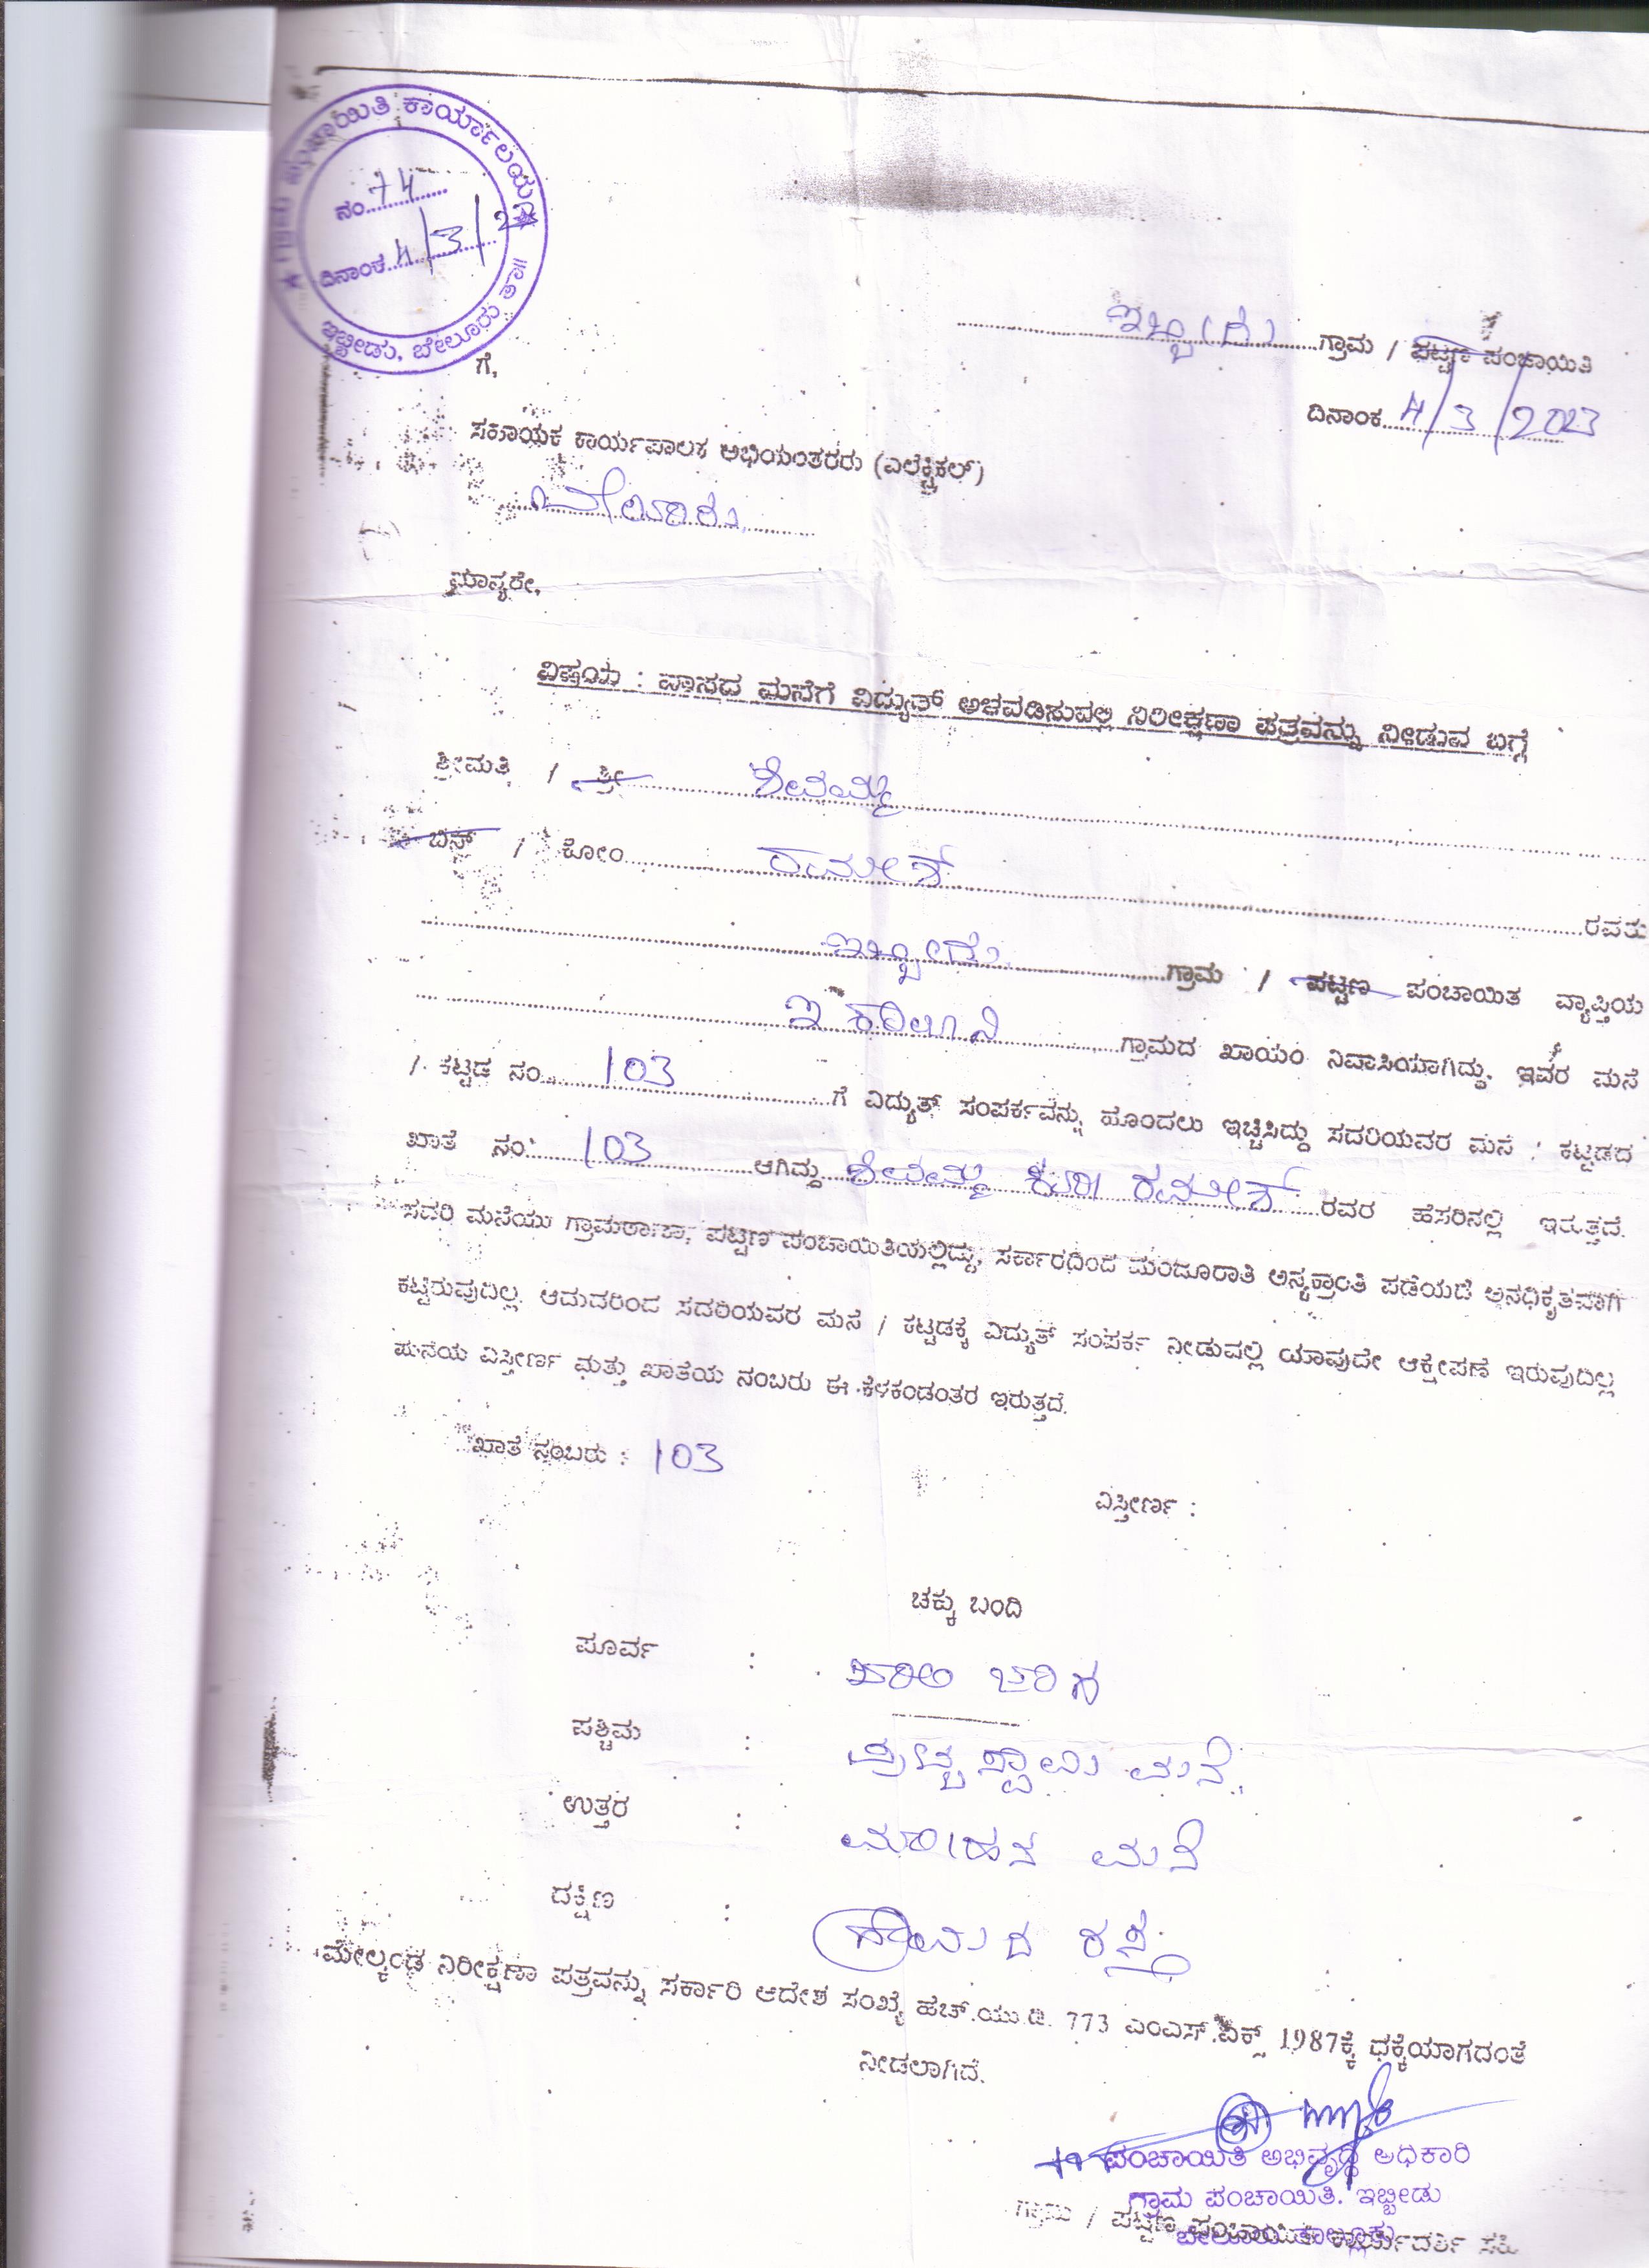 ಪಂಚಾಯಿತಿ ಕಾರ್ಯಾಲಯ
ನಂ. 74
ದಿನಾಂಕ 4/3/23
ಇಬ್ಬೀಡು, ಬೇಲೂರು ತಾ||
ಇಬ್ಬೀಡು ಗ್ರಾಮ / ಪಟ್ಟಣ ಪಂಚಾಯಿತಿ
ದಿನಾಂಕ 4/3/2023
ಗೆ,
ಸಹಾಯಕ ಕಾರ್ಯಪಾಲಕ ಅಭಿಯಂತರರು (ಎಲೆಕ್ಟ್ರಿಕಲ್)
ಬೇಲೂರು
ಮಾನ್ಯರೇ,
ವಿಷಯ : ವಾಸದ ಮನೆಗೆ ವಿದ್ಯುತ್ ಅಳವಡಿಸುವಲ್ಲಿ ನಿರೀಕ್ಷಣಾ ಪತ್ರವನ್ನು ನೀಡುವ ಬಗ್ಗೆ
ಶ್ರೀಮತಿ / ಶ್ರೀ
ಬಿನ್ / ಕೋಂ ರಮೇಶ್ ರವರು
ಇಬ್ಬೀಡು ಗ್ರಾಮ / ಪಟ್ಟಣ ಪಂಚಾಯಿತ ವ್ಯಾಪ್ತಿಯ
ಇ ಕಾಲೂನಿ ಗ್ರಾಮದ ಖಾಯಂ ನಿವಾಸಿಯಾಗಿದ್ದು, ಇವರ ಮನೆ
/ ಕಟ್ಟಡ ನಂ. 103 ಗೆ ವಿದ್ಯುತ್ ಸಂಪರ್ಕವನ್ನು ಹೊಂದಲು ಇಚ್ಚಿಸಿದ್ದು ಸದರಿಯವರ ಮನೆ / ಕಟ್ಟಡದ
ಖಾತೆ ನಂ 103 ಆಗಿದ್ದು ರಮೇಶ್ ರವರ ಹೆಸರಿನಲ್ಲಿ ಇರುತ್ತದೆ.
ಸದರಿ ಮನೆಯು ಗ್ರಾಮಠಾಣಾ, ಪಟ್ಟಣ ಪಂಚಾಯಿತಿಯಲ್ಲಿದ್ದು, ಸರ್ಕಾರದಿಂದ ಮಂಜೂರಾತಿ ಅನ್ಯಕ್ರಾಂತಿ ಪಡೆಯದೆ ಅನಧಿಕೃತವಾಗಿ
ಕಟ್ಟಿರುವುದಿಲ್ಲ. ಆದುದರಿಂದ ಸದರಿಯವರ ಮನೆ / ಕಟ್ಟಡಕ್ಕೆ ವಿದ್ಯುತ್ ಸಂಪರ್ಕ ನೀಡುವಲ್ಲಿ ಯಾವುದೇ ಆಕ್ಷೇಪಣೆ ಇರುವುದಿಲ್ಲ
ಮನೆಯ ವಿಸ್ತೀರ್ಣ ಮತ್ತು ಖಾತೆಯ ನಂಬರು ಈ ಕೆಳಕಂಡಂತರ ಇರುತ್ತದೆ.
ಖಾತೆ ನಂಬರು : 103
ವಿಸ್ತೀರ್ಣ :
ಚಕ್ಕು ಬಂದಿ
ಪೂರ್ವ : ಖಾಲಿ ಜಾಗ
ಪಶ್ಚಿಮ : ಪುಟ್ಟಸ್ವಾಮಿ ಮನೆ
ಉತ್ತರ : ಮೋಹನ ಮನೆ
ದಕ್ಷಿಣ : ಗ್ರಾಮದ ರಸ್ತೆ
ಮೇಲ್ಕಂಡ ನಿರೀಕ್ಷಣಾ ಪತ್ರವನ್ನು ಸರ್ಕಾರಿ ಆದೇಶ ಸಂಖ್ಯೆ ಹೆಚ್.ಯು.ಡಿ. 773 ಎಂಎಸ್.ಎಕ್ಸ್ 1987ಕ್ಕೆ ಧಕ್ಕೆಯಾಗದಂತೆ
ನೀಡಲಾಗಿದೆ.
ಪಂಚಾಯಿತಿ ಅಭಿವೃದ್ಧಿ ಅಧಿಕಾರಿ
ಗ್ರಾಮ ಪಂಚಾಯಿತಿ. ಇಬ್ಬೀಡು
ಗ್ರಾಮ / ಪಟ್ಟಣ ಪಂಚಾಯಿತಿ ಕಾರ್ಯದರ್ಶಿ ಸಹಿ